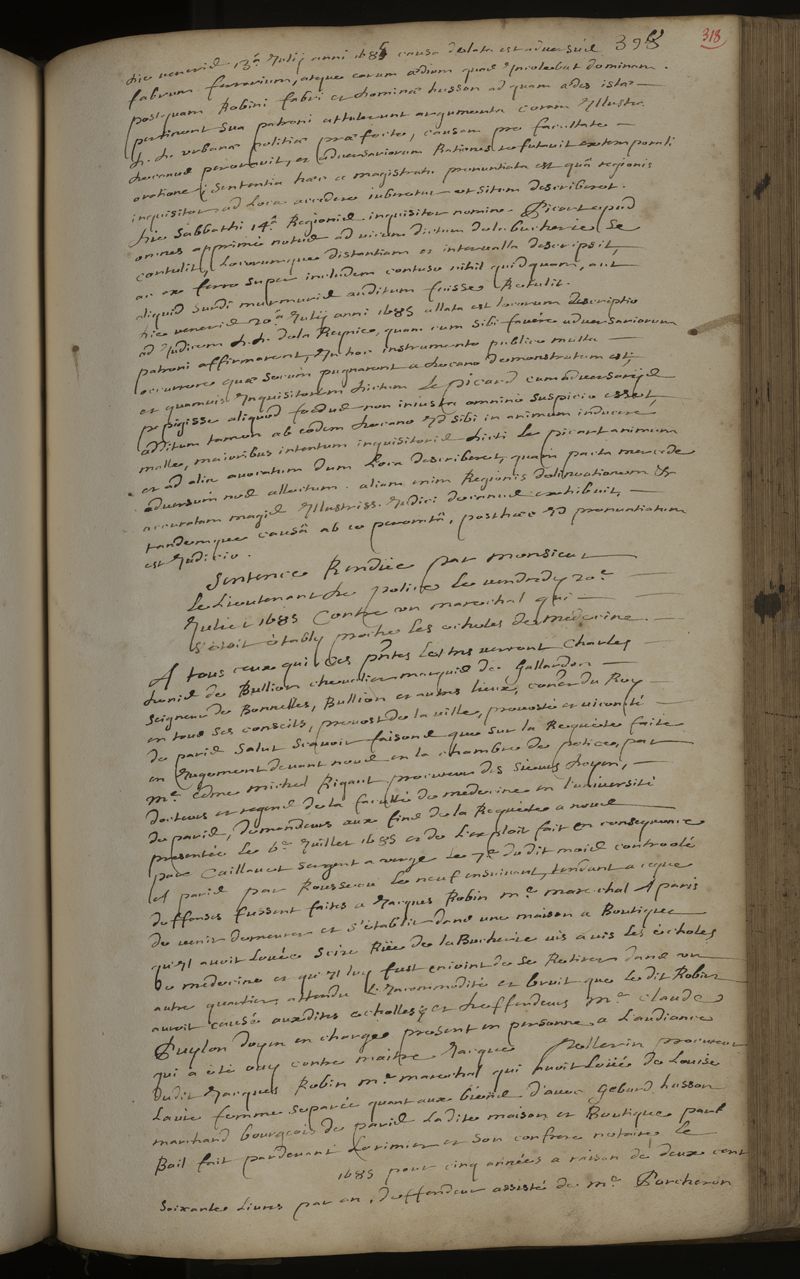 398
318
die veneris 13ª Julij anni 1685 causa delata est adversus
fabrum ferrarium, atque earum ædium quas Incolebat dominam.
postquam Robini fabri et dominæ husson ad quam ædes istæ
pertinent sua patroni attulerunt argumenta coram Illustr.
d. d. urbanæ politiæ præfecto, causam pro facultate
decanus peroravit, et adversariorum Rationes refutavit extemporali
oratione; Sententia hæc a magistratu pronuntiata est quâ regionis
inquisitor ad Loca accedere iuberetur et situm describeret.
die Sabbathi 14ª Regionis inquisitor nomine Picart apud
omnes apprime notus ad vicum dictum de la bucherie se
contulit, Locorumque distantiam et intervalla descripsit,
ac ex ferro super incudem contuso nihil quidquam, aut
aliquid surdi murmuris auditum fuisse Retulit.
die veneris 20ª Julij anni 1685 allata est locorum descriptio
ad Judicem d. d. de la Reynie, quam cum sibi favere adversariorum
patroni affirmarent, In hoc instrumento publico multa
occurrere quæ secum pugnarent a decano demonstratum est,
et quamvis Inquisitorem dictum Le picard cum adversarijs
pepigisse aliquod foedus non iniusta omnino suspicio esset,
additum tamen ab eodem decano Id sibi in animum inducere
malle, maioribus intentum inquisitoris dicti Le picart animum
et ad alia avocatum dum Loca describeret, quam pacta mercede
adversum nos allectum. aliam enim Regionis delineationem &
accuratam magis Illustriss. Judici decanus exhibuit,
tandemque causâ ab eo peroratâ, posthæc Id pronuntiatum
est Judicio.
Sentence Rendüe par monsieur
Le Lieutenant de police Le vendredy 20e
Juliet 1685 Contre un marechal qui
s'etoit etably proche les echoles de medecine.
A tous ceux qui ces pntes Lettres verront Charles
denis de Bullion chevalier marquis de Gallardon
Seigneur de Bonnelles, Bullion et autres lieux, coner du Roy
en tous ses conseils, prevost de la ville, prevosté et vicomté
de paris Salut Sçavoir faisons que sur la Requete faite
en Jugement devant nous en la chambre de police, par
me edme michel Rigaut procureur des Sieurs doyen,
docteurs et regens de la faculté de medecine en l'université
de paris, demandeurs aux fins de la Requete a nous
presentée Le 6e Juillet 1685 et de L'exploit fait en consequence
par Caillauct sergent a verge Le 7e du dit mois controolé
A paris par Rousseau Le neuf ensuivant, tendant a ceque
deffenses fussent faites a Jacques Robin me marechal A paris
de venir demeurer et s'etablir dans une maison a Boutique
qu'Il avoit Louée seize Rüe de la Bucherie vis a vis les echoles
de medecine et qu'Il luy fust enioint de se Retirer dans un
autre quartier, attendu L'Incommodité et bruit que Le dit Robin
auroit causé auxdites echolles; et deffendeurs me claude
Puylon doyen en charge present en personne a L'audiance
qui a été ouy contre maitre Jacques Pellerin procureur
dudit Jacques Robin me marechal qui avoit Loüée de Louise
Lavie femme separée quant aux biens d'avec Gebard husson
marchand bourgeois de paris Ladite maison et Boutique par
Bail fait pardevant Lorimier et Son confrere notaires Le
1685 pour cinq années a raison de deux cent
soixante Livres par an, deffendeur assisté de me Porcheron